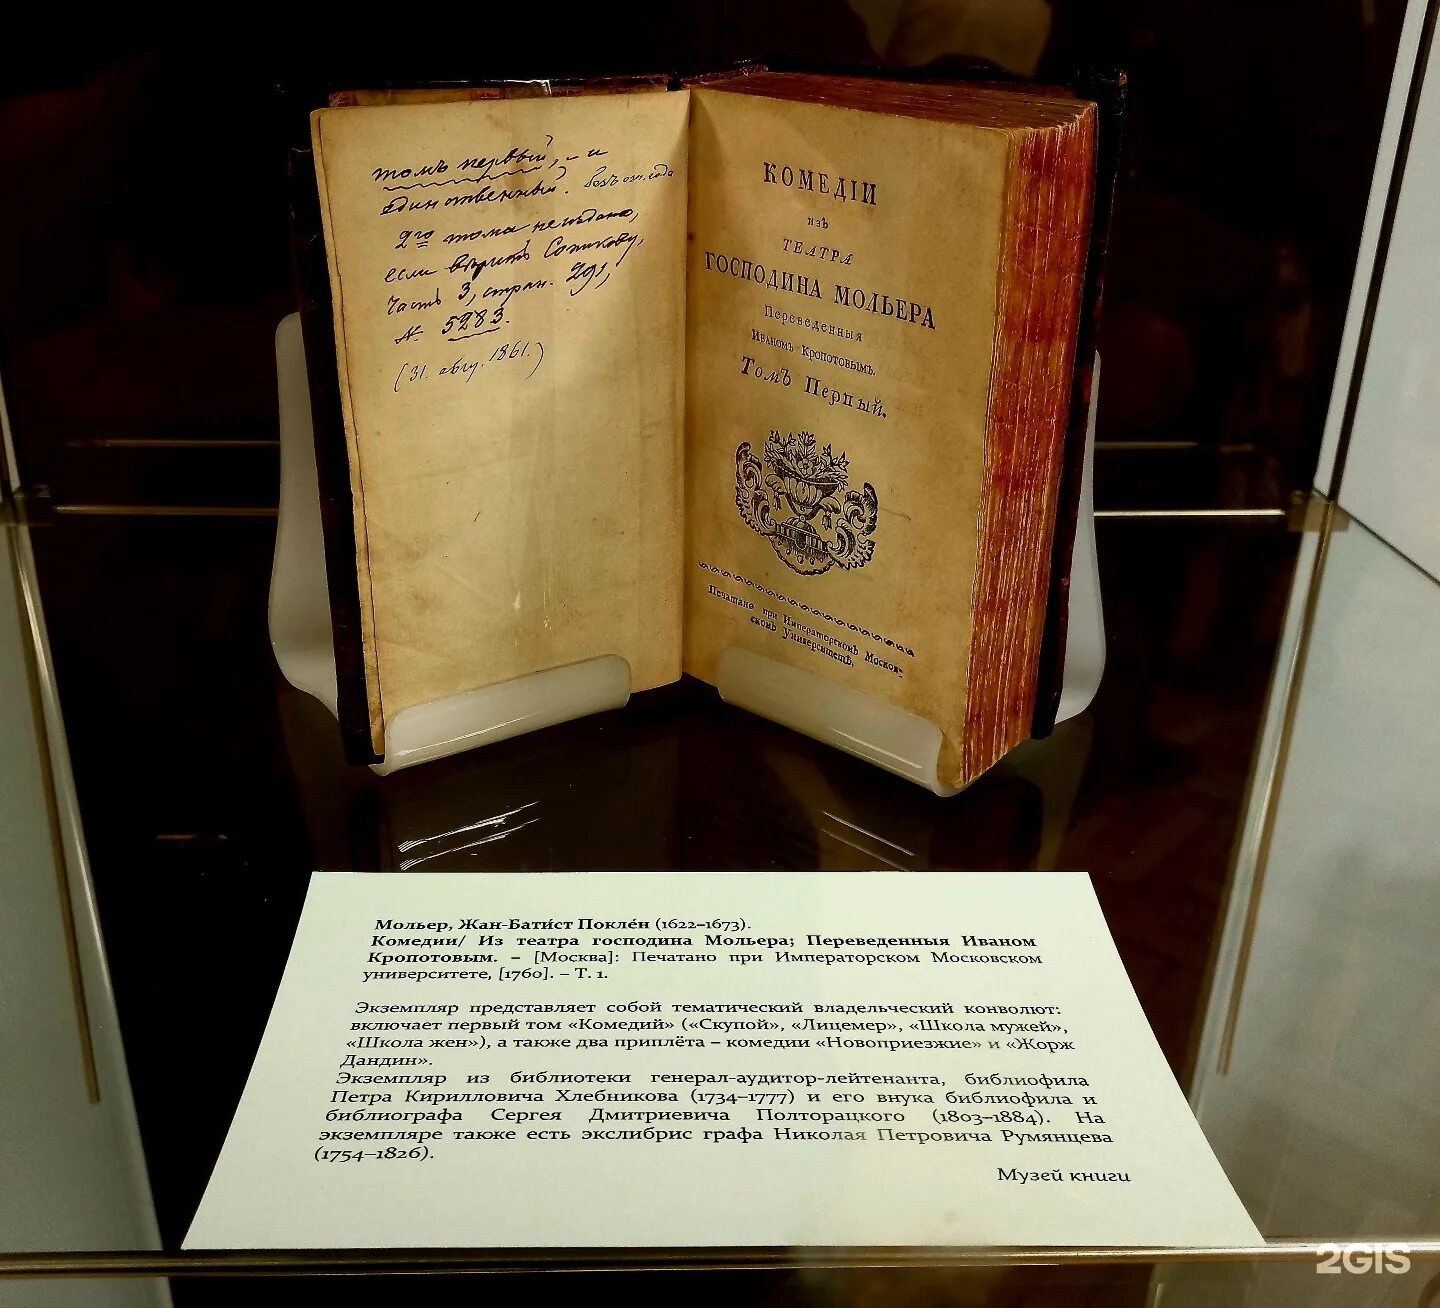 томъ первый, – и
единственный. Безъ озн. года
2го тома не издано,
если вѣрить Сопикову,
Часть 3, стран. 291,
№. 5283.
(31. авгу. 1861.)
КОМЕДІИ
изъ
ТЕАТРА
ГОСПОДИНА МОЛЬЕРА
Переведенныя
Иваномъ Кропотовымъ.
Томъ Первый.
Печатано при Императорскомъ Москов-
скомъ Университетѣ,
Мольер, Жан-Бати́ст Покле́н (1622–1673).
Комедии/ Из театра господина Мольера; Переведенныя Иваном
Кропотовым. – [Москва]: Печатано при Императорском Московском
университете, [1760]. – Т. 1.
Экземпляр представляет собой тематический владельческий конволют:
включает первый том «Комедий» («Скупой», «Лицемер», «Школа мужей»,
«Школа жен»), а также два приплёта – комедии «Новоприезжие» и «Жорж
Дандин».
Экземпляр из библиотеки генерал-аудитор-лейтенанта, библиофила
Петра Кирилловича Хлебникова (1734–1777) и его внука библиофила и
библиографа Сергея Дмитриевича Полторацкого (1803–1884). На
экземпляре также есть экслибрис графа Николая Петровича Румянцева
(1754–1826).
Музей книги
2GIS